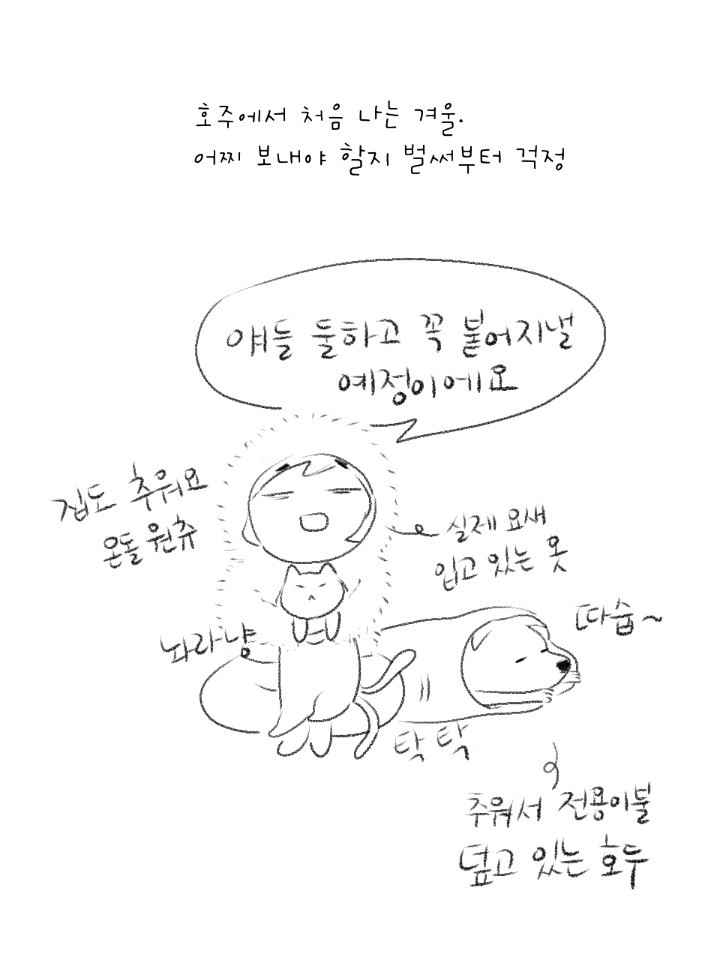 호주에서 처음 나는 겨울.
어찌 보내야 할지 벌써부터 걱정
얘들 둘하고 꼭 붙어지낼
예정이에요
집도 추워요
온돌 원츄
실제 요새
입고 있는 옷
놔라냥
따숩~
탁 탁
추워서 전용이불
덮고 있는 호두